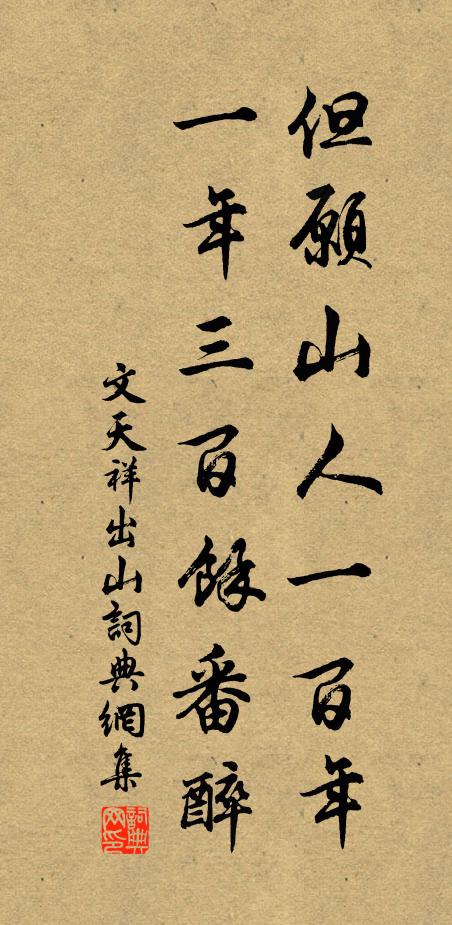 但願山人一百年
一年三百餘番醉
文天祥出山詞典網集
詞典网印